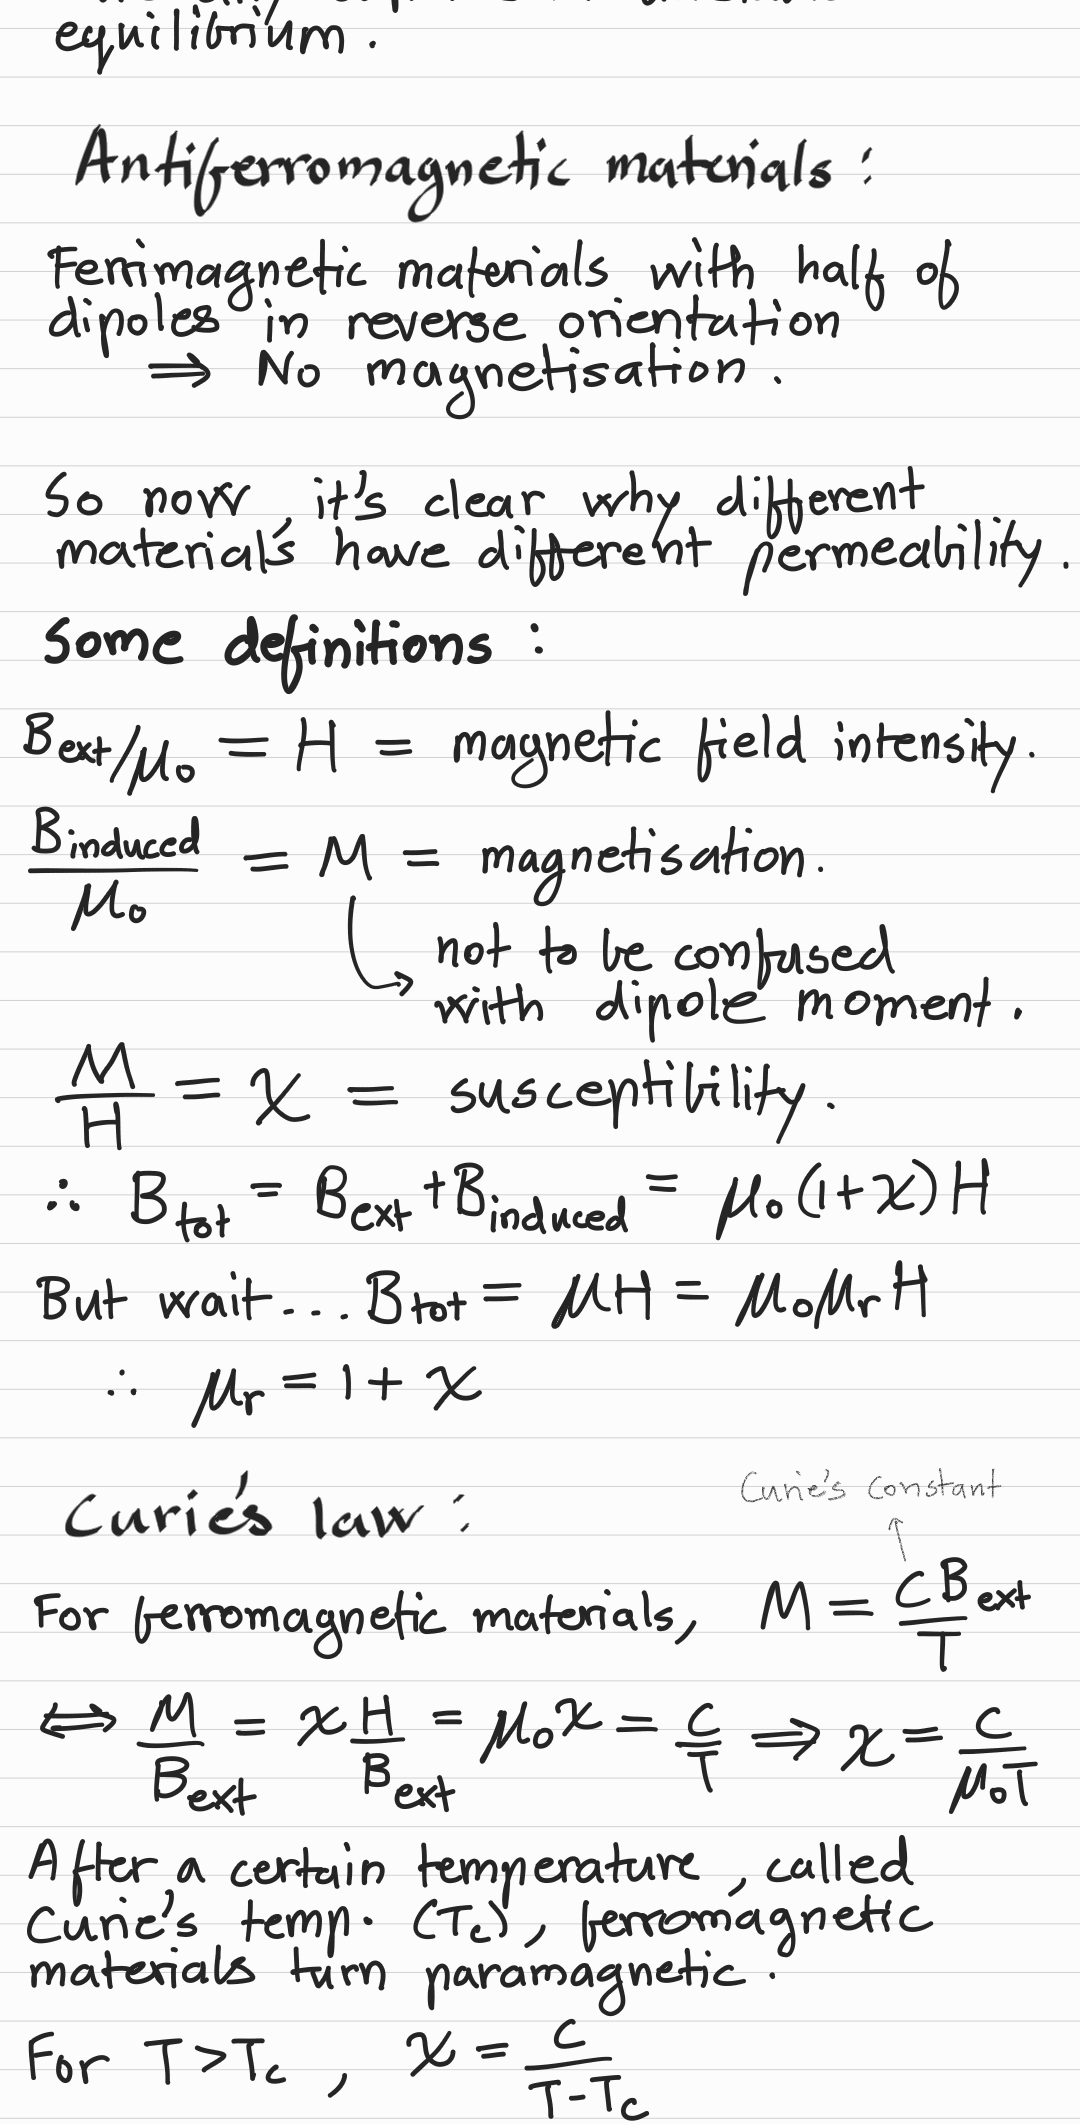 equilibrium.
Antiferromagnetic materials:
Ferrimagnetic materials with half of
dipoles in reverse orientation
⇒ No magnetisation.
So now it's clear why different
materials have different permeability.
Some definitions:
B_ext/μ₀ = H = magnetic field intensity.
B_induced/μ₀ = M = magnetisation.
not to be confused
with dipole moment.
M/H = χ = susceptibility.
∴ B_tot = B_ext + B_induced = μ₀(1+χ)H
But wait... B_tot = μH = μ₀μ_r H
∴ μ_r = 1 + χ
Curie's constant
Curie's law:
For ferromagnetic materials, M = C B_ext/T
⇔ M/B_ext = χ H/B_ext = μ₀χ = C/T ⇒ χ = C/μ₀T
After a certain temperature, called
Curie's temp. (T_c), ferromagnetic
materials turn paramagnetic.
For T > T_c, χ = C/(T - T_c)